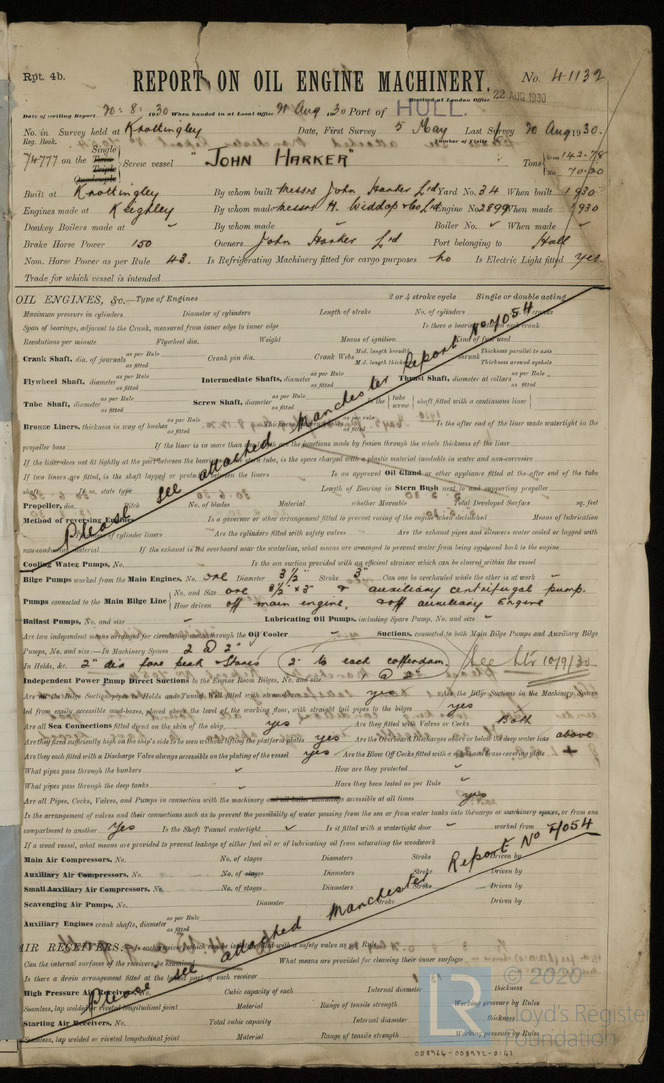 Rpt. 4b.
REPORT ON OIL ENGINE MACHINERY. No. 41132
Received at London Office 22 AUG 1930
Date of writing Report 20. 8. 1930 When handed in at Local Office 21 Aug 1930 Port of HULL.
No. in Survey held at Knottingley Date, First Survey 5 May Last Survey 20 Aug 1930.
Reg. Book. Number of Visits
74777 on the Single Screw vessel "JOHN HARKER" Tons Gross 142.78
Net 70.20
Built at Knottingley By whom built Messrs John Harker Ltd Yard No. 34 When built 1930
Engines made at Keighley By whom made Messrs H. Widdop & Co Ltd Engine No. 2899 When made 1930
Donkey Boilers made at By whom made Boiler No. When made
Brake Horse Power 150 Owners John Harker Ltd Port belonging to Hull
Nom. Horse Power as per Rule 43. Is Refrigerating Machinery fitted for cargo purposes no Is Electric Light fitted yes
Trade for which vessel is intended
OIL ENGINES, &c. Type of Engines 2 or 4 stroke cycle Single or double acting
Maximum pressure in cylinders Diameter of cylinders Length of stroke No. of cylinders No. of cranks
Span of bearings, adjacent to the Crank, measured from inner edge to inner edge Is there a bearing between each crank
Revolutions per minute Flywheel dia. Weight Means of ignition Kind of fuel used
Crank Shaft, dia. of journals as per Rule as fitted Crank pin dia. Crank Webs Mid. length breadth Mid. length thickness shrunk Thickness parallel to axis Thickness around eyehole
Flywheel Shaft, diameter as per Rule as fitted Intermediate Shafts, diameter as per Rule as fitted Thrust Shaft, diameter at collars as per Rule as fitted
Tube Shaft, diameter as per Rule as fitted Screw Shaft, diameter as per Rule as fitted Is the tube screw shaft fitted with a continuous liner
Bronze Liners, thickness in way of bushes as per Rule as fitted as per rule as fitted Is the after end of the liner made watertight in the
propeller boss If the liner is in more than are the junctions made by fusion through the whole thickness of the liner
If the liner does not fit tightly at the part between the bearings in the stern tube, is the space charged with a plastic material insoluble in water and non-corrosive
If two liners are fitted, is the shaft lapped or protected between the liners Is an approved Oil Gland or other appliance fitted at the after end of the tube
shaft If so, state type Length of Bearing in Stern Bush next to and supporting propeller
Propeller, dia. Pitch No. of blades Material whether Moveable Total Developed Surface sq. feet
Method of reversing Engines Is a governor or other arrangement fitted to prevent racing of the engine when declutched Means of lubrication
of cylinder liners Are the cylinders fitted with safety valves Are the exhaust pipes and silencers water cooled or lagged with
non-conducting material If the exhaust is led overboard near the waterline, what means are arranged to prevent water from being syphoned back to the engine
Cooling Water Pumps, No. Is the sea suction provided with an efficient strainer which can be cleared within the vessel
Bilge Pumps worked from the Main Engines, No. one Diameter 3½" Stroke 3" Can one be overhauled while the other is at work
Pumps connected to the Main Bilge Line No. and Size one 3½" × 3" & auxiliary centrifugal pump.
How driven off main engine, & off auxiliary Engine
Ballast Pumps, No. and size Lubricating Oil Pumps, including Spare Pump, No. and size
Are two independent means arranged for circulating water through the Oil Cooler Suctions, connected to both Main Bilge Pumps and Auxiliary Bilge
Pumps, No. and size:—In Machinery Spaces 2 @ 2"
In Holds, &c. 2" dia fore peak & Stores 2" to each cofferdam. See Ltr 10/9/30
Independent Power Pump Direct Suctions to the Engine Room Bilges, No. and size @ 2"
Are all the Bilge Suction Pipes in Holds and Tunnel Well fitted with strum boxes yes Are the Bilge Suctions in the Machinery Spaces
led from easily accessible mud-boxes, placed above the level of the working floor, with straight tail pipes to the bilges yes
Are all Sea Connections fitted direct on the skin of the ship yes Are they fitted with Valves or Cocks Both
Are they fixed sufficiently high on the ship's side to be seen without lifting the platform plates yes Are the Overboard Discharges above or below the deep water line above
Are they each fitted with a Discharge Valve always accessible on the plating of the vessel yes Are the Blow Off Cocks fitted with a spigot and brass covering plate
What pipes pass through the bunkers How are they protected
What pipes pass through the deep tanks Have they been tested as per Rule
Are all Pipes, Cocks, Valves, and Pumps in connection with the machinery accessible at all times yes
Is the arrangement of valves and their connections such as to prevent the possibility of water passing from the sea or from water tanks into the cargo or machinery spaces, or from one
compartment to another Yes Is the Shaft Tunnel watertight Is it fitted with a watertight door worked from
If a wood vessel, what means are provided to prevent leakage of either fuel oil or of lubricating oil from saturating the woodwork
Main Air Compressors, No. No. of stages Diameters Stroke Driven by
Auxiliary Air Compressors, No. No. of stages Diameters Stroke Driven by
Small Auxiliary Air Compressors, No. No. of stages Diameters Stroke Driven by
Scavenging Air Pumps, No. Diameter Stroke Driven by
Auxiliary Engines crank shafts, diameter as per Rule as fitted
AIR RECEIVERS:— Is each receiver, which can be isolated, fitted with a safety valve as per Rule
Can the internal surfaces of the receivers be examined What means are provided for cleaning their inner surfaces
Is there a drain arrangement fitted at the lowest part of each receiver
High Pressure Air Receivers, No. Cubic capacity of each Internal diameter thickness
Seamless, lap welded or riveted longitudinal joint Material Range of tensile strength Working pressure by Rules
Starting Air Receivers, No. Total cubic capacity Internal diameter thickness
Seamless, lap welded or riveted longitudinal joint Material Range of tensile strength Working pressure by Rules
Please see attached Manchester Report No 4054
Please see attached Manchester Report No 4054
LR © 2020 Lloyd's Register Foundation
008964-008972-0161